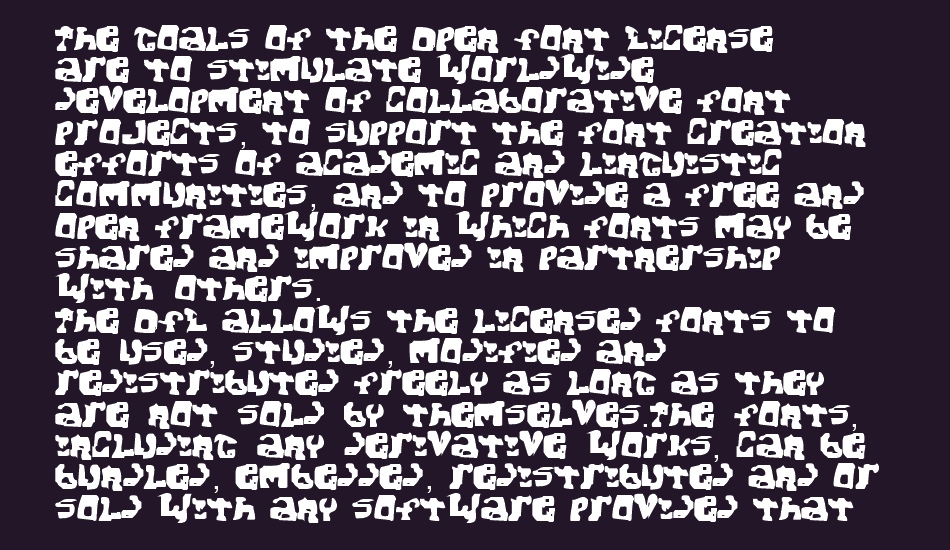 The goals of the Open Font License
are to stimulate worldwide
development of collaborative font
projects, to support the font creation
efforts of academic and linguistic
communities, and to provide a free and
open framework in which fonts may be
shared and improved in partnership
with others.
The OFL allows the licensed fonts to
be used, studied, modified and
redistributed freely as long as they
are not sold by themselves.The fonts,
including any derivative works, can be
bundled, embedded, redistributed and or
sold with any software provided that